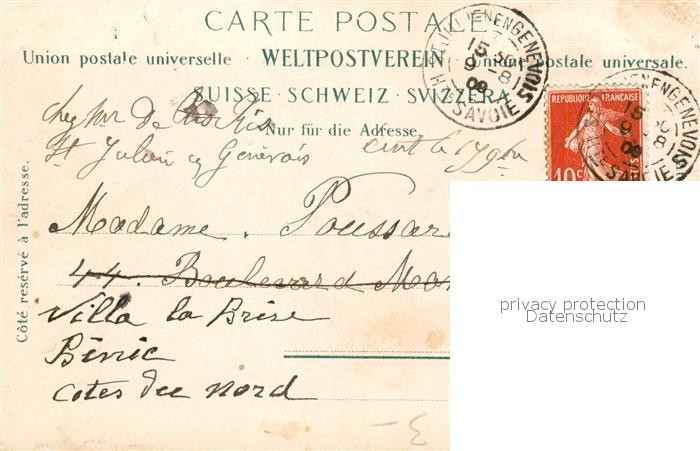 CARTE POSTALE
Union postale universelle · WELTPOSTVEREIN · Union postale universale.
SUISSE · SCHWEIZ · SVIZZERA
Nur für die Adresse.
Côté reservé à l'adresse.
ST JULIEN EN GENEVOIS
15 30
9 -8
09
HTE SAVOIE
REPUBLIQUE FRANÇAISE
10c
chez Mr De
St Julien en Genevois
Madame. Poussar
44. Boulevard Mon
Villa la Brise
Binic
Cotes du Nord
privacy protection
Datenschutz